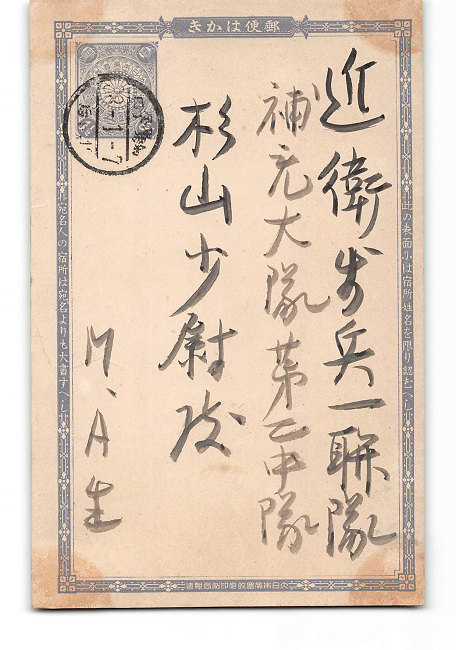 郵便はかき
此の表面には宿所姓名を限り認むへし
近衛歩兵一聯隊
補充大隊第二中隊
杉山少尉殿
M、A生
宛名人の宿所は宛名よりも大書すへし
大日本帝國政府印刷局製造